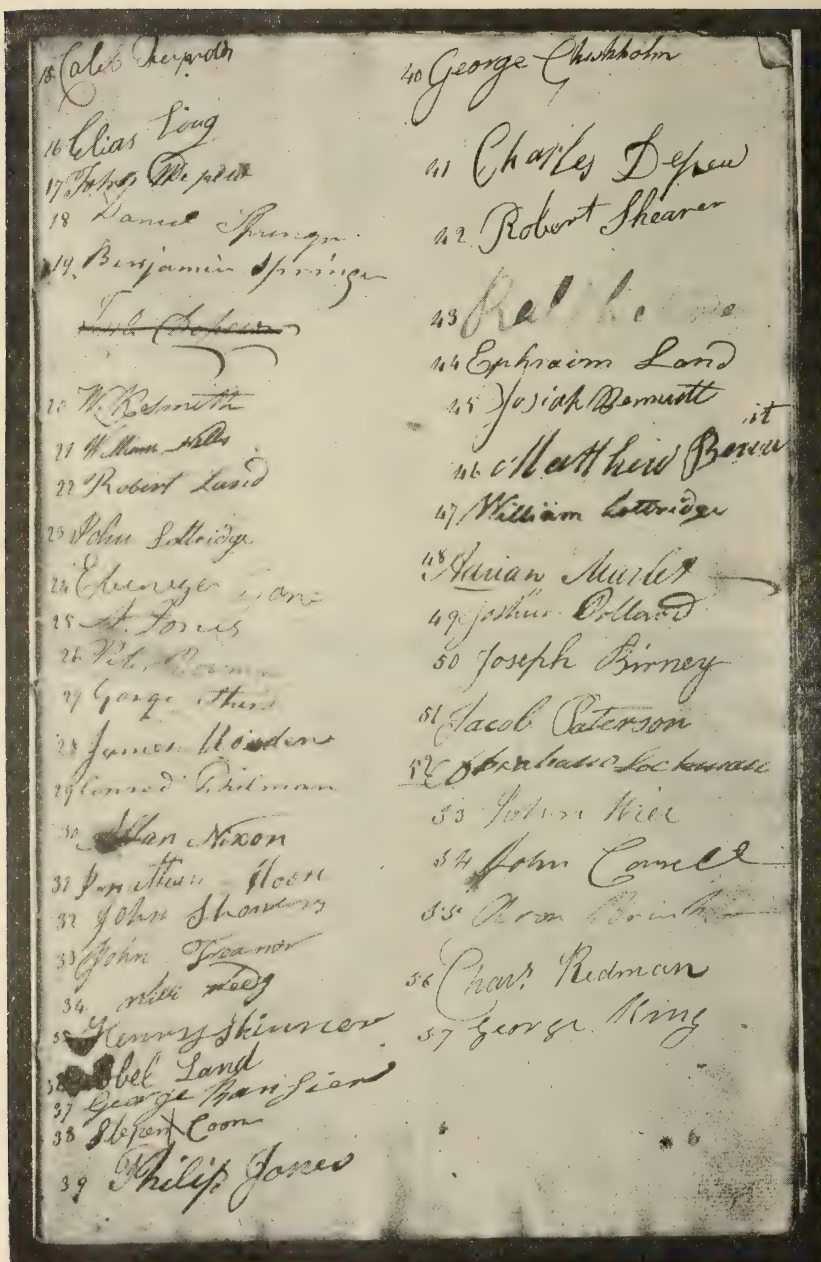 15 Caleb Reynolds
16 Elias Long
17 John Depew
18 Daniel Springer
19 Benjamin Springer
Depew
20 W. Nesmith
21 William Hills
22 Robert Land
23 John Lottridge
24 Ebenezer
25 A. Jones
26 Peter
27 George
28 James
29 Conrod Filman
30 Allan Nixon
31 Jonathan Moore
32 John Showers
33 John Treanor
34
35 Henry Skinner
36 Abel Land
37 George Ransier
38 Stepen Coon
39 Philip Jones
40 George Chishholm
41 Charles Depew
42 Robert Shearer
43
44 Ephraim Land
45 Josiah
46 Matthew
47 William Lottridge
48 Adrian Marlet
49 Joshua Dollard
50 Joseph Birney
51 Jacob Paterson
52 Abraham Lockwood
53 John
54 John Cornell
55 Aron
56 Chas. Redman
57 George King